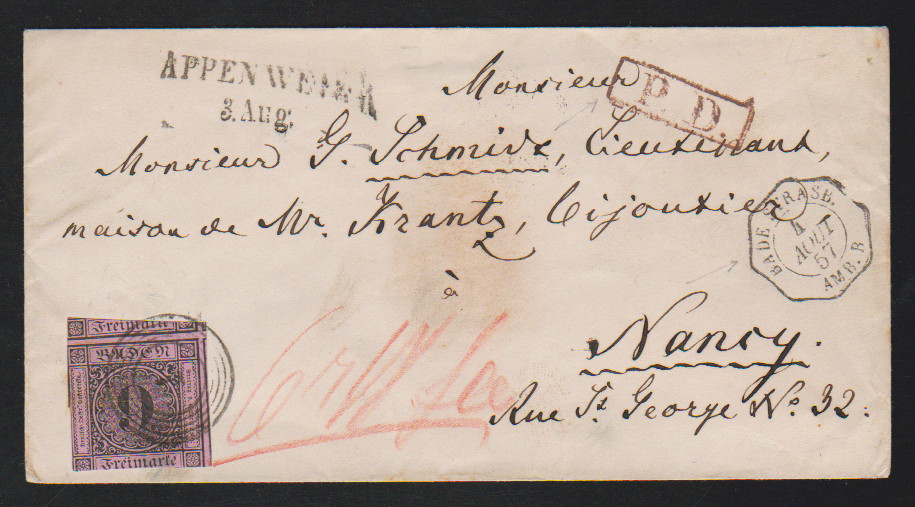 APPENWEIER
3. Aug.
Monsieur
P. D.
Monsieur G. Schmidt, Lieutenant,
maison de Mr. Krantz, bijoutier
BADE STRASB.
4
AOUT
57
AMB. B
à
Nancy.
Rue St George No. 32.
Freimarke
BADEN
9
Freimarke